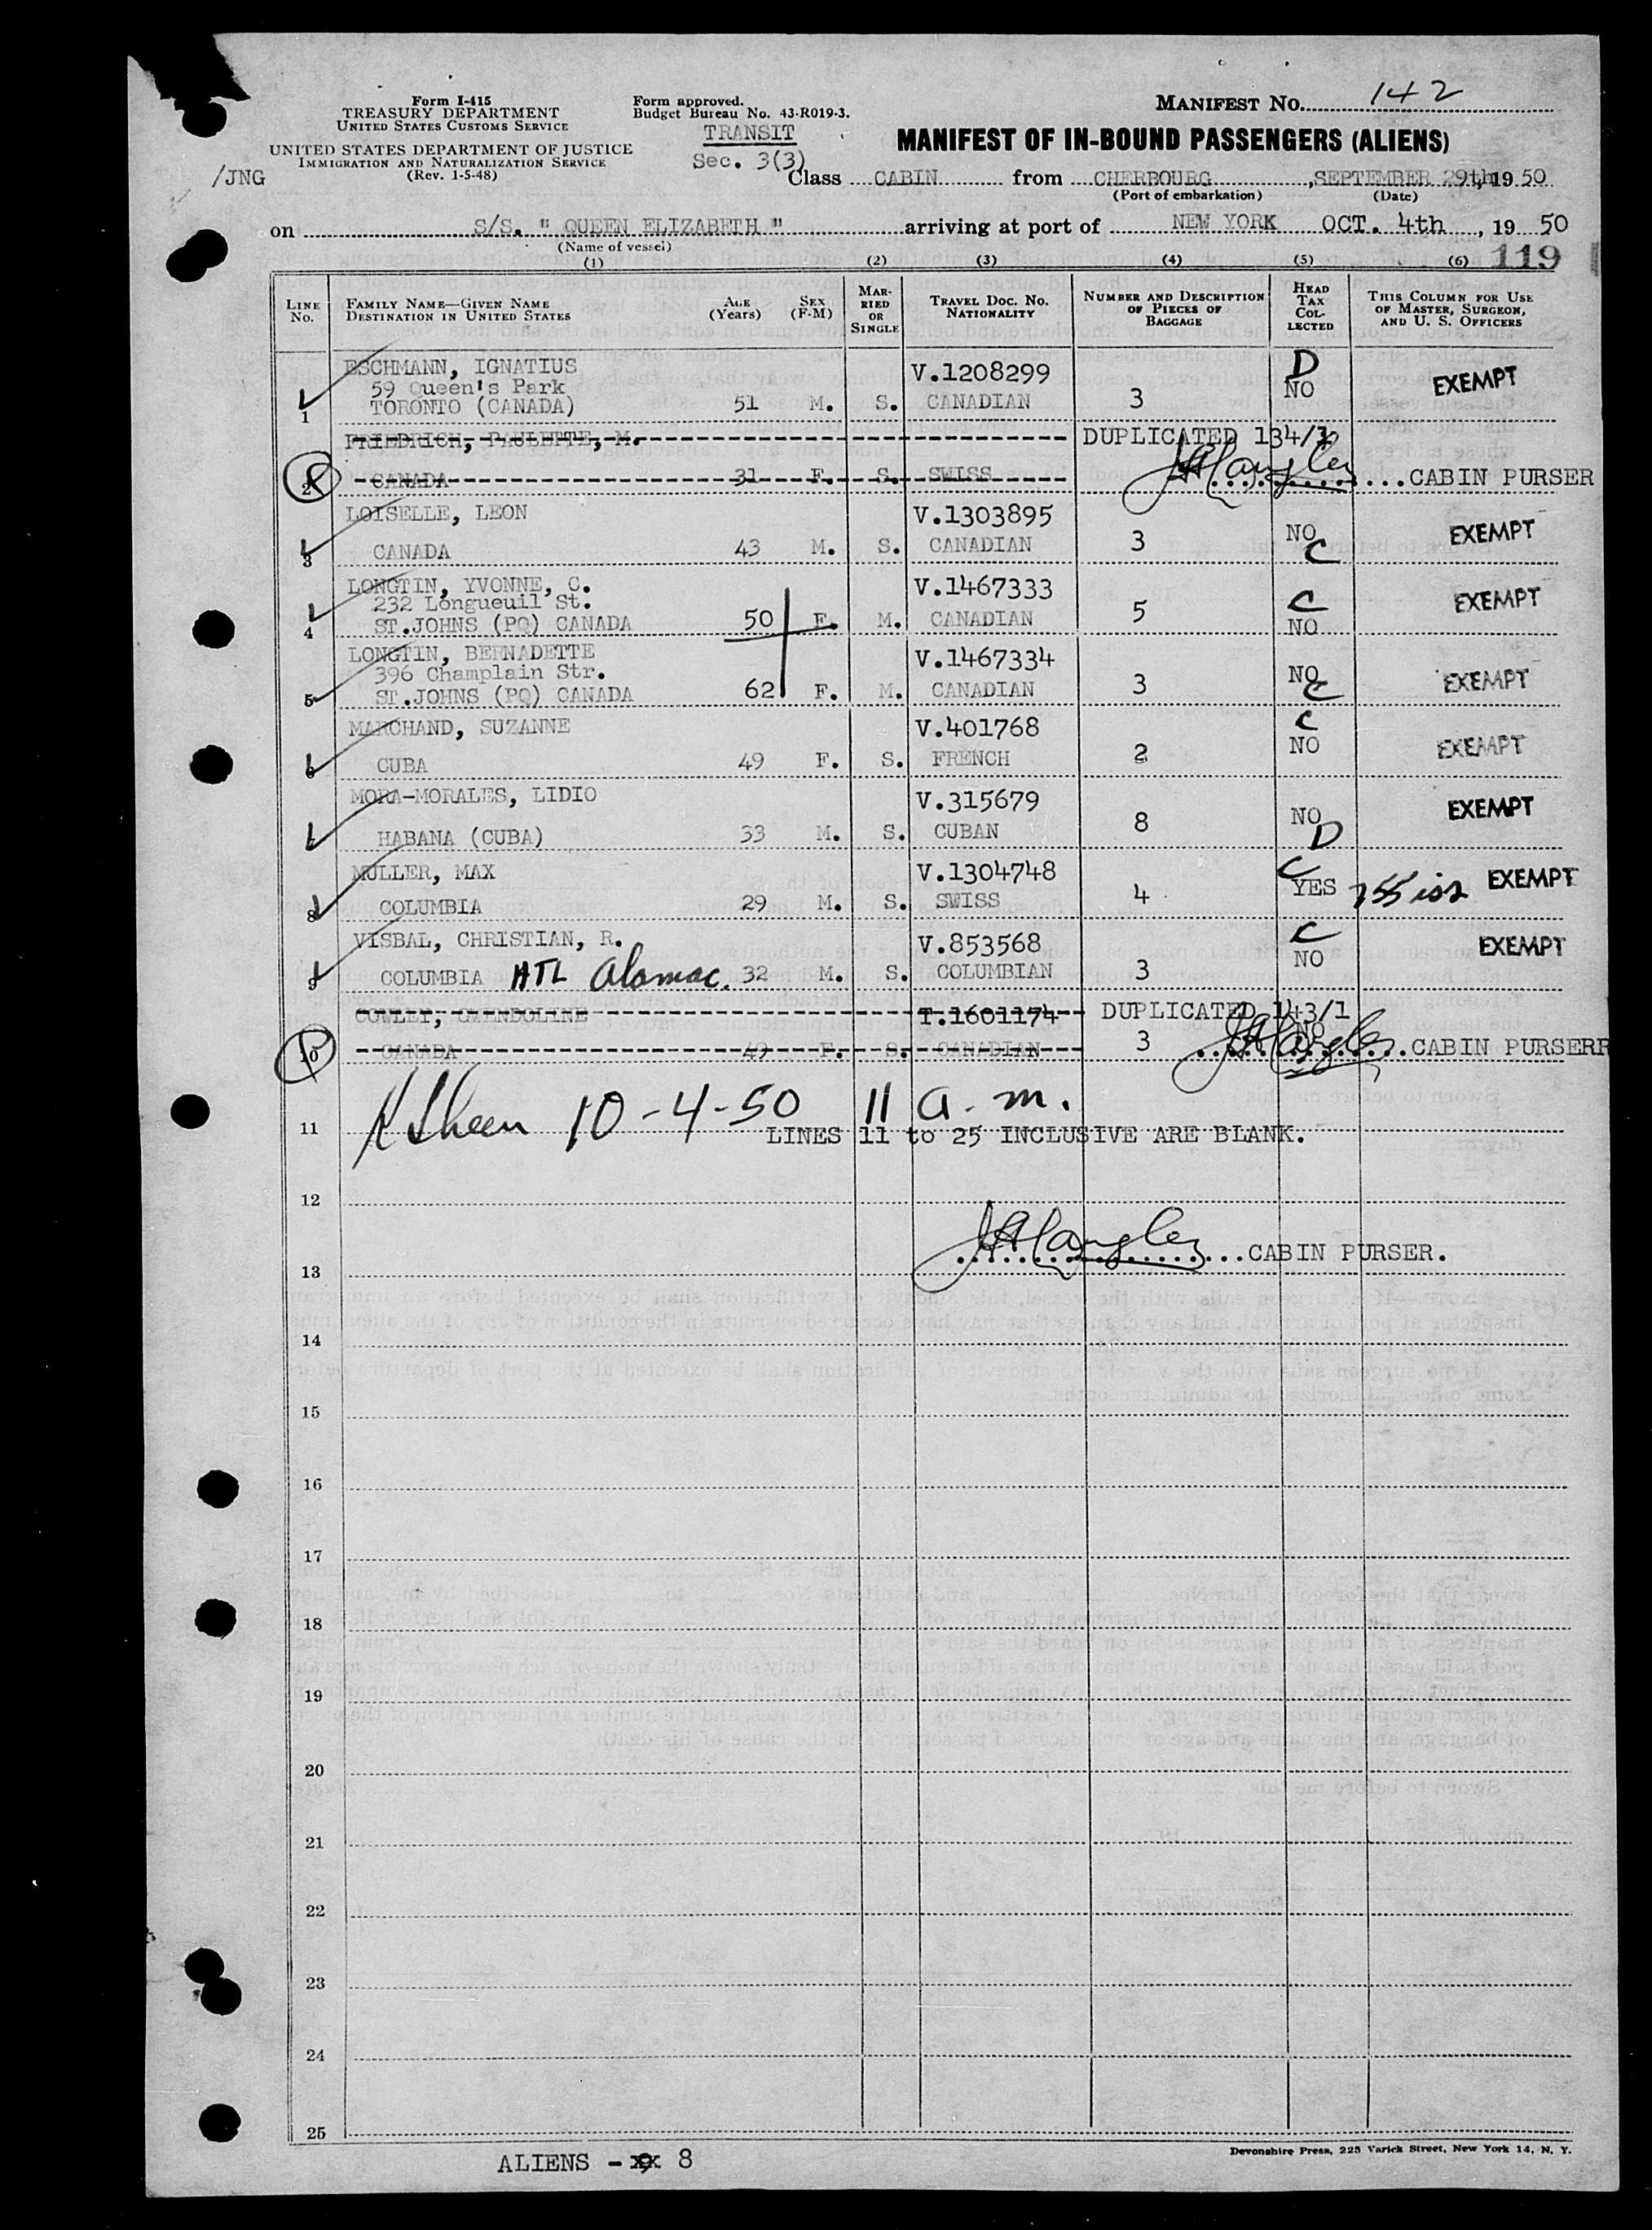 Form I-415
TREASURY DEPARTMENT
UNITED STATES CUSTOMS SERVICE
UNITED STATES DEPARTMENT OF JUSTICE
IMMIGRATION AND NATURALIZATION SERVICE
(Rev. 1-5-48)
/JNG
Form approved.
Budget Bureau No. 43-R019-3.
TRANSIT
Sec. 3(3)
MANIFEST NO. 142
MANIFEST OF IN-BOUND PASSENGERS (ALIENS)
Class CABIN from CHERBOURG, SEPTEMBER 29th, 1950
(Port of embarkation) (Date)
on S/S. " QUEEN ELIZABETH " arriving at port of NEW YORK OCT. 4th, 19 50
(Name of vessel)
119
(1) (2) (3) (4) (5) (6)
LINE NO. FAMILY NAME—GIVEN NAME DESTINATION IN UNITED STATES AGE (Years) SEX (F-M) MARRIED OR SINGLE TRAVEL DOC. NO. NATIONALITY NUMBER AND DESCRIPTION OF PIECES OF BAGGAGE HEAD TAX COLLECTED THIS COLUMN FOR USE OF MASTER, SURGEON, AND U. S. OFFICERS
ESCHMANN, IGNATIUS V.1208299 D
59 Queen's Park NO EXEMPT
1 TORONTO (CANADA) 51 M. S. CANADIAN 3
FRIEDRICH, PAULETTE, M. DUPLICATED 134/1
2 CANADA 31 F. S. SWISS JHLangley CABIN PURSER
LOISELLE, LEON V.1303895 NO EXEMPT
3 CANADA 43 M. S. CANADIAN 3 C
LONGTIN, YVONNE, C. V.1467333
232 Longueuil St. C EXEMPT
4 ST.JOHNS (PQ) CANADA 50 F. M. CANADIAN 5 NO
LONGTIN, BERNADETTE V.1467334
396 Champlain Str. NO EXEMPT
5 ST.JOHNS (PQ) CANADA 62 F. M. CANADIAN 3 C
MARCHAND, SUZANNE V.401768 C
6 CUBA 49 F. S. FRENCH 2 NO EXEMPT
MORA-MORALES, LIDIO V.315679 NO EXEMPT
7 HABANA (CUBA) 33 M. S. CUBAN 8 D
MULLER, MAX V.1304748 C EXEMPT
8 COLUMBIA 29 M. S. SWISS 4 YES
VISBAL, CHRISTIAN, R. V.853568 C EXEMPT
9 COLUMBIA HTL Alamac. 32 M. S. COLUMBIAN 3 NO
COWLEY, GWENDOLINE T.1601174 DUPLICATED 143/1
10 CANADA 49 F. S. CANADIAN 3 NO JHLangley CABIN PURSERR
Sheen 10-4-50 11 a.m.
11 LINES 11 to 25 INCLUSIVE ARE BLANK.
12
JHLangley CABIN PURSER.
13
14
15
16
17
18
19
20
21
22
23
24
25
ALIENS - 8
Devonshire Press, 225 Varick Street, New York 14, N. Y.